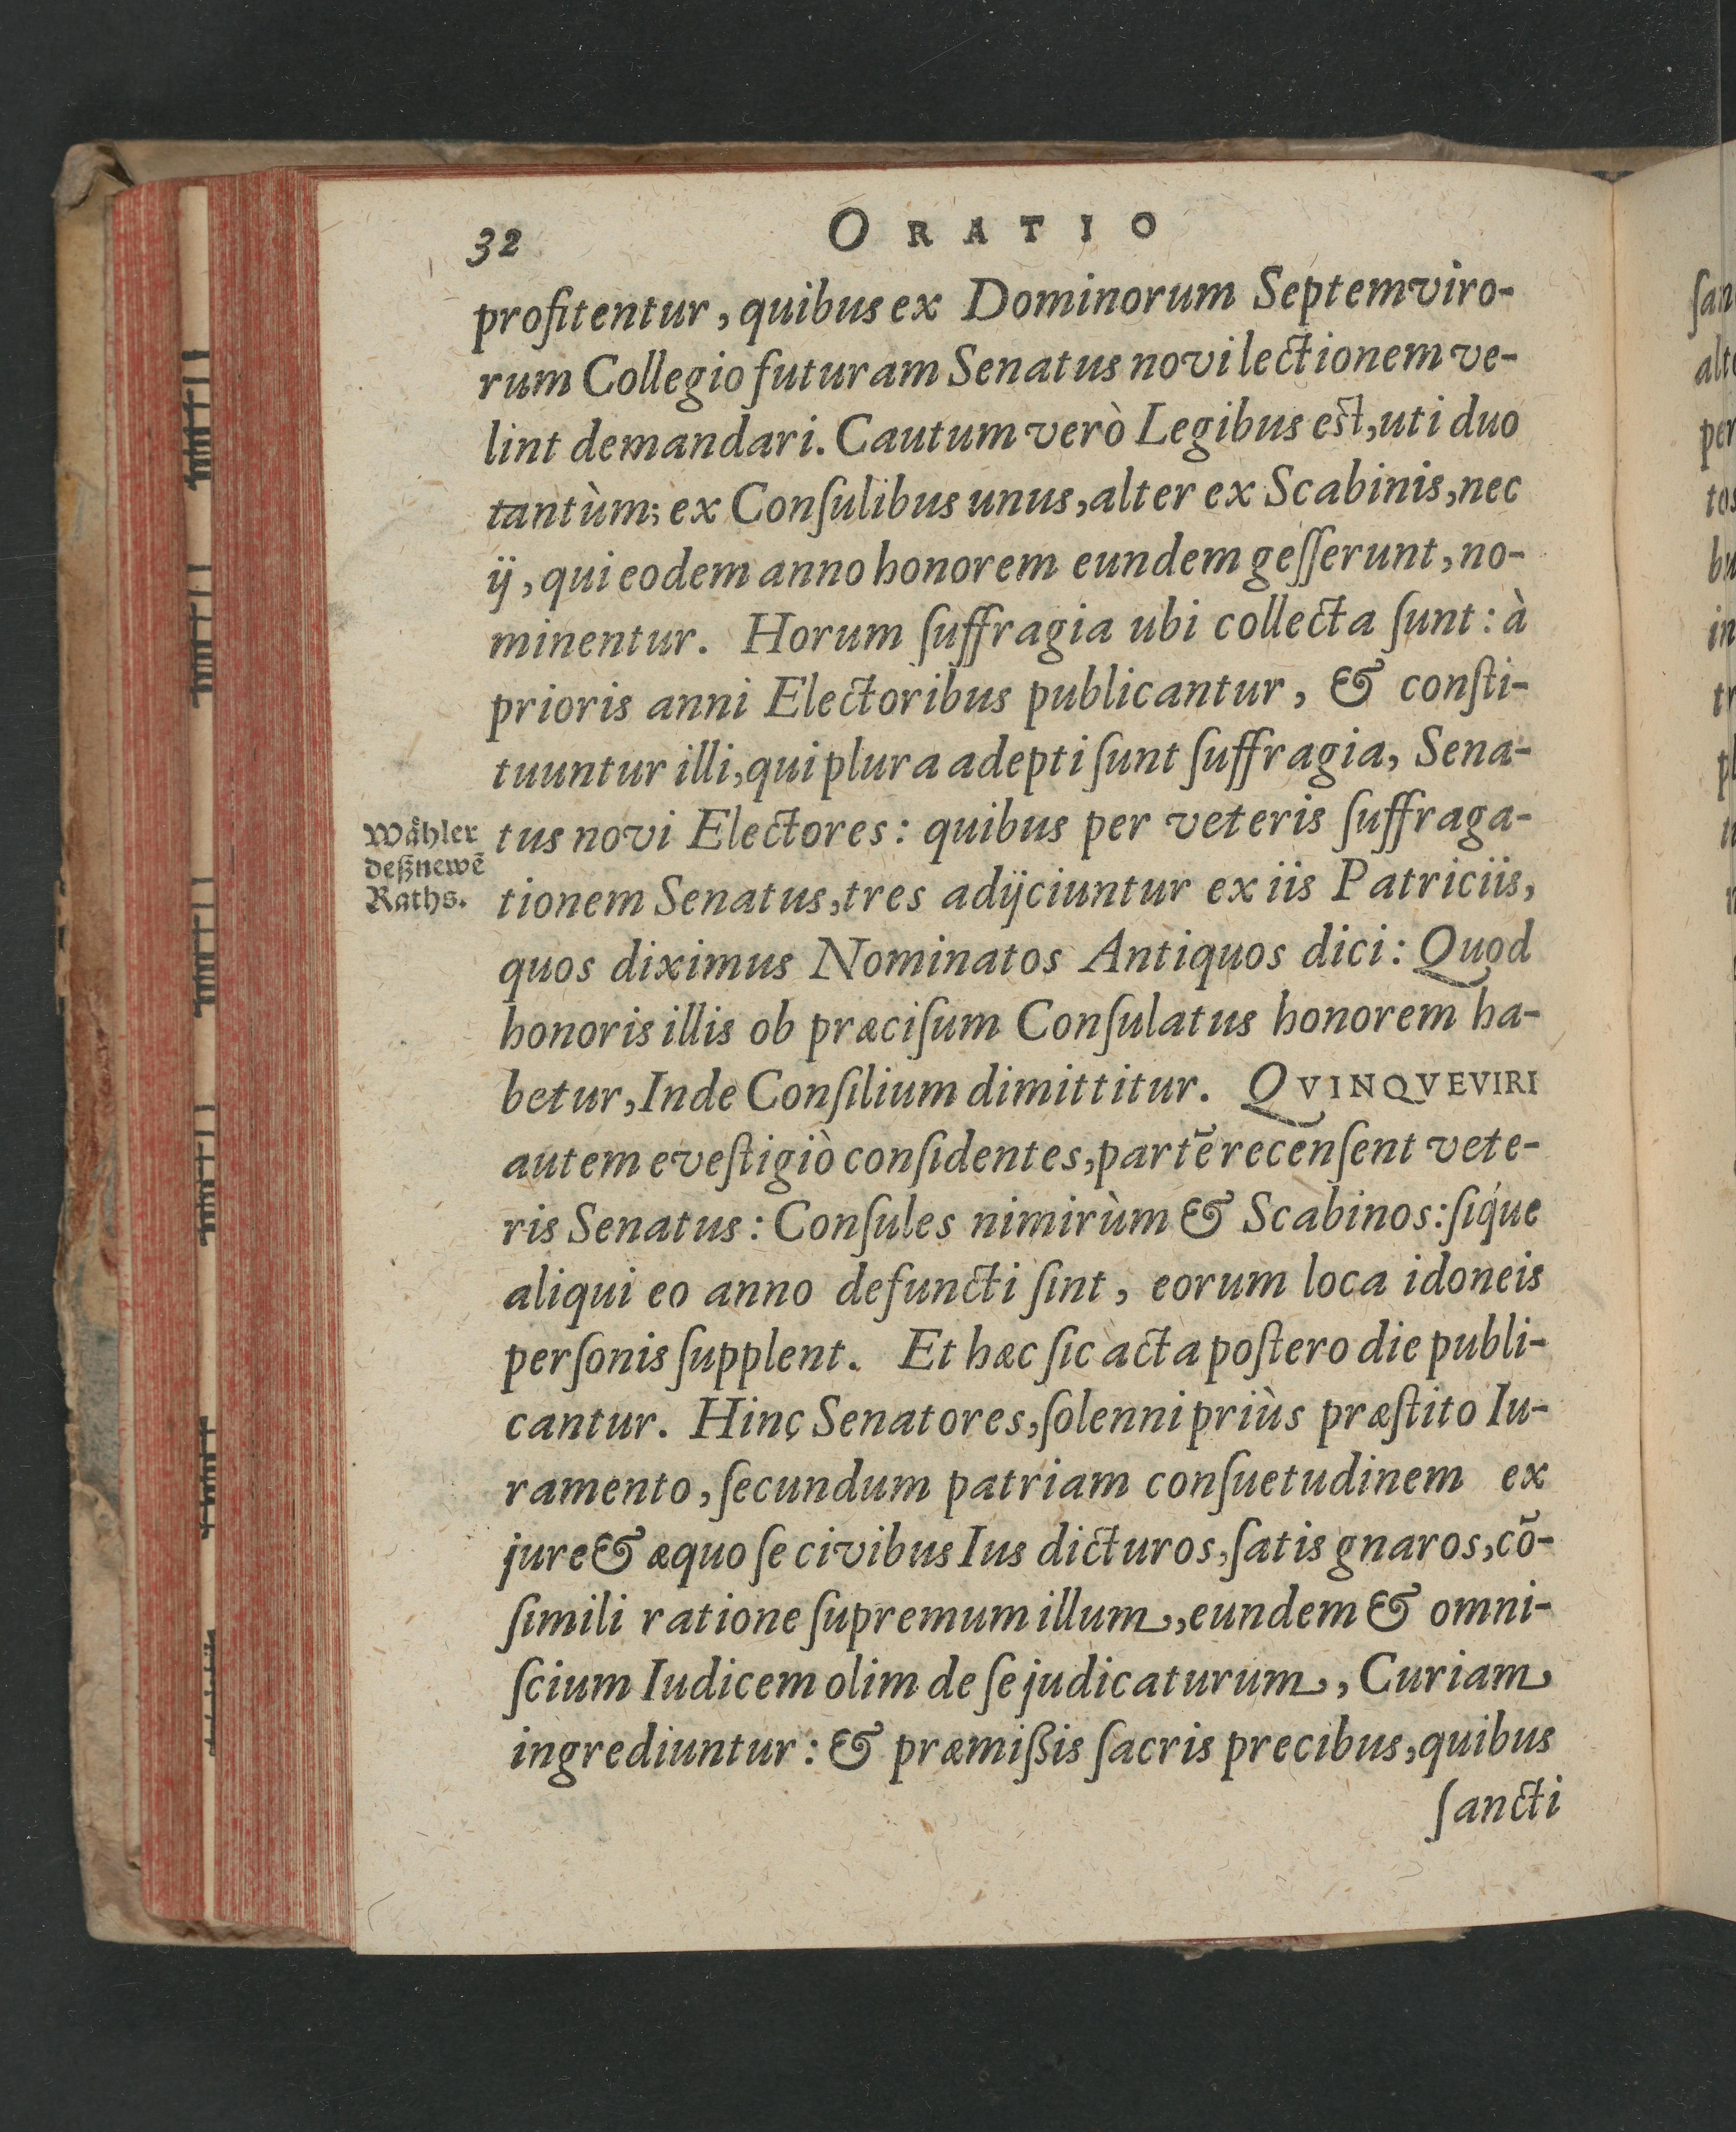 32
ORATIO
profitentur, quibus ex Dominorum Septemviro-
rum Collegio futuram Senatus novi lectionem ve-
lint demandari. Cautum verò Legibus est, uti duo
tantùm; ex Conſulibus unus, alter ex Scabinis, nec
ij, qui eodem anno honorem eundem geſſerunt, no-
minentur. Horum ſuffragia ubi collecta ſunt: à
prioris anni Electoribus publicantur, & conſti-
tuuntur illi, qui plura adepti ſunt ſuffragia, Sena-
tus novi Electores: quibus per veteris ſuffraga-
tionem Senatus, tres adijciuntur ex iis Patriciis,
quos diximus Nominatos Antiquos dici: Quod
honoris illis ob præciſum Conſulatus honorem ha-
betur, Inde Conſilium dimittitur. QVINQVEVIRI
autem eveſtigiò conſidentes, partẽ recenſent vete-
ris Senatus: Conſules nimirùm & Scabinos: ſiq́ue
aliqui eo anno defuncti ſint, eorum loca idoneis
perſonis ſupplent. Et hæc ſic acta poſtero die publi-
cantur. Hinç Senatores, ſolenni priùs præſtito Iu-
ramento, ſecundum patriam conſuetudinem ex
jure & æquo ſe civibus Ius dicturos, ſatis gnaros, cõ-
ſimili ratione ſupremum illum, eundem & omni-
ſcium Iudicem olim de ſe judicaturum, Curiam
ingrediuntur: & præmißis ſacris precibus, quibus
ſancti
Waͤhler
deß newẽ
Raths.
ſan
alte
per
tos
bu
in
tr
pl